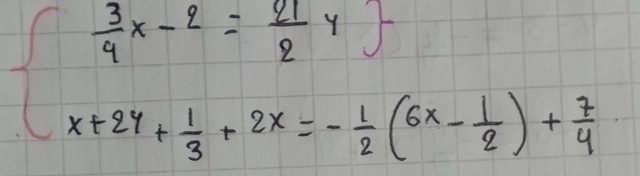 3/4 x - 2 = 21/2 y
x + 2y + 1/3 + 2x = - 1/2 (6x - 1/2) + 7/4